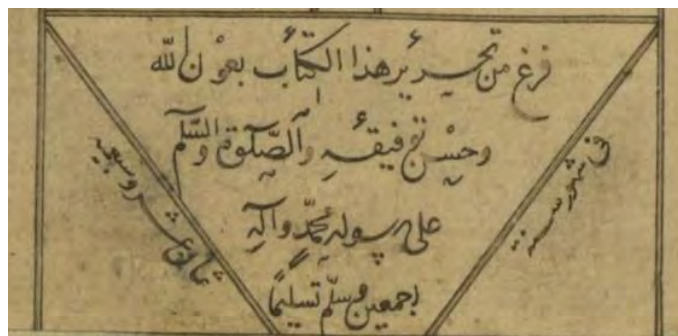 فرغ من تحرير هذا الكتاب بعون الله
وحسن توفيقه والصلوة والسلم
على رسوله محمد وآله
اجمعين وسلم تسليما
فى شهور سنة
ثمان عشر وسبعميه